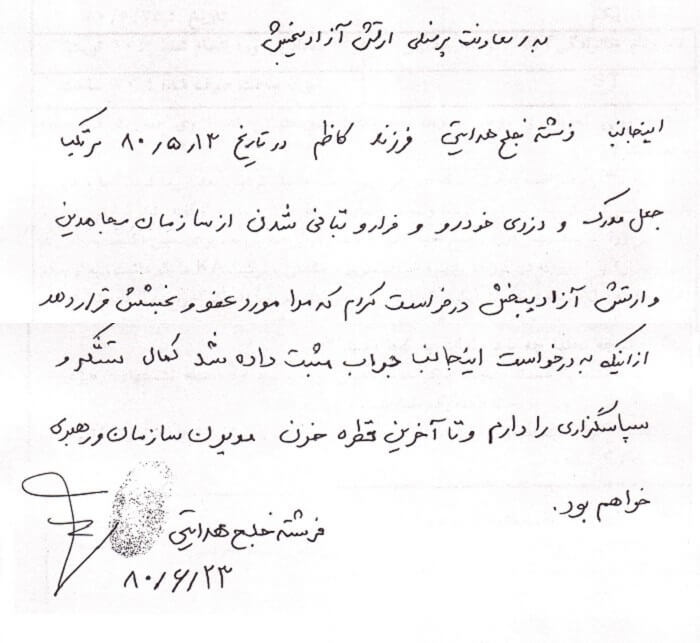 به معاونت پرسنلی ارتش آزادیبخش
اینجانب فرشته خلج هدایتی فرزند کاظم در تاریخ ۸۰٫۵٫۱۳ مرتکب
جعل مدرک و دزدی خودرو و فرار و تبانی شدن از سازمان مجاهدین
و ارتش آزادیبخش درخواست کردم که مرا مورد عفو و بخشش قرار دهد
از اینکه به درخواست اینجانب جواب مثبت داده شد کمال تشکر و
سپاسگزاری را دارم و تا آخرین قطره خون مدیون سازمان و رهبری
خواهم بود.
فرشته خلج هدایتی
۸۰/۶/۲۳